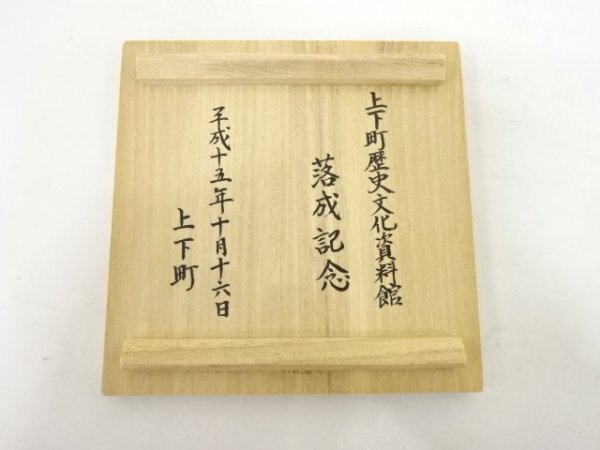 上下町歴史文化資料館
落成記念
平成十五年十月十六日
上下町